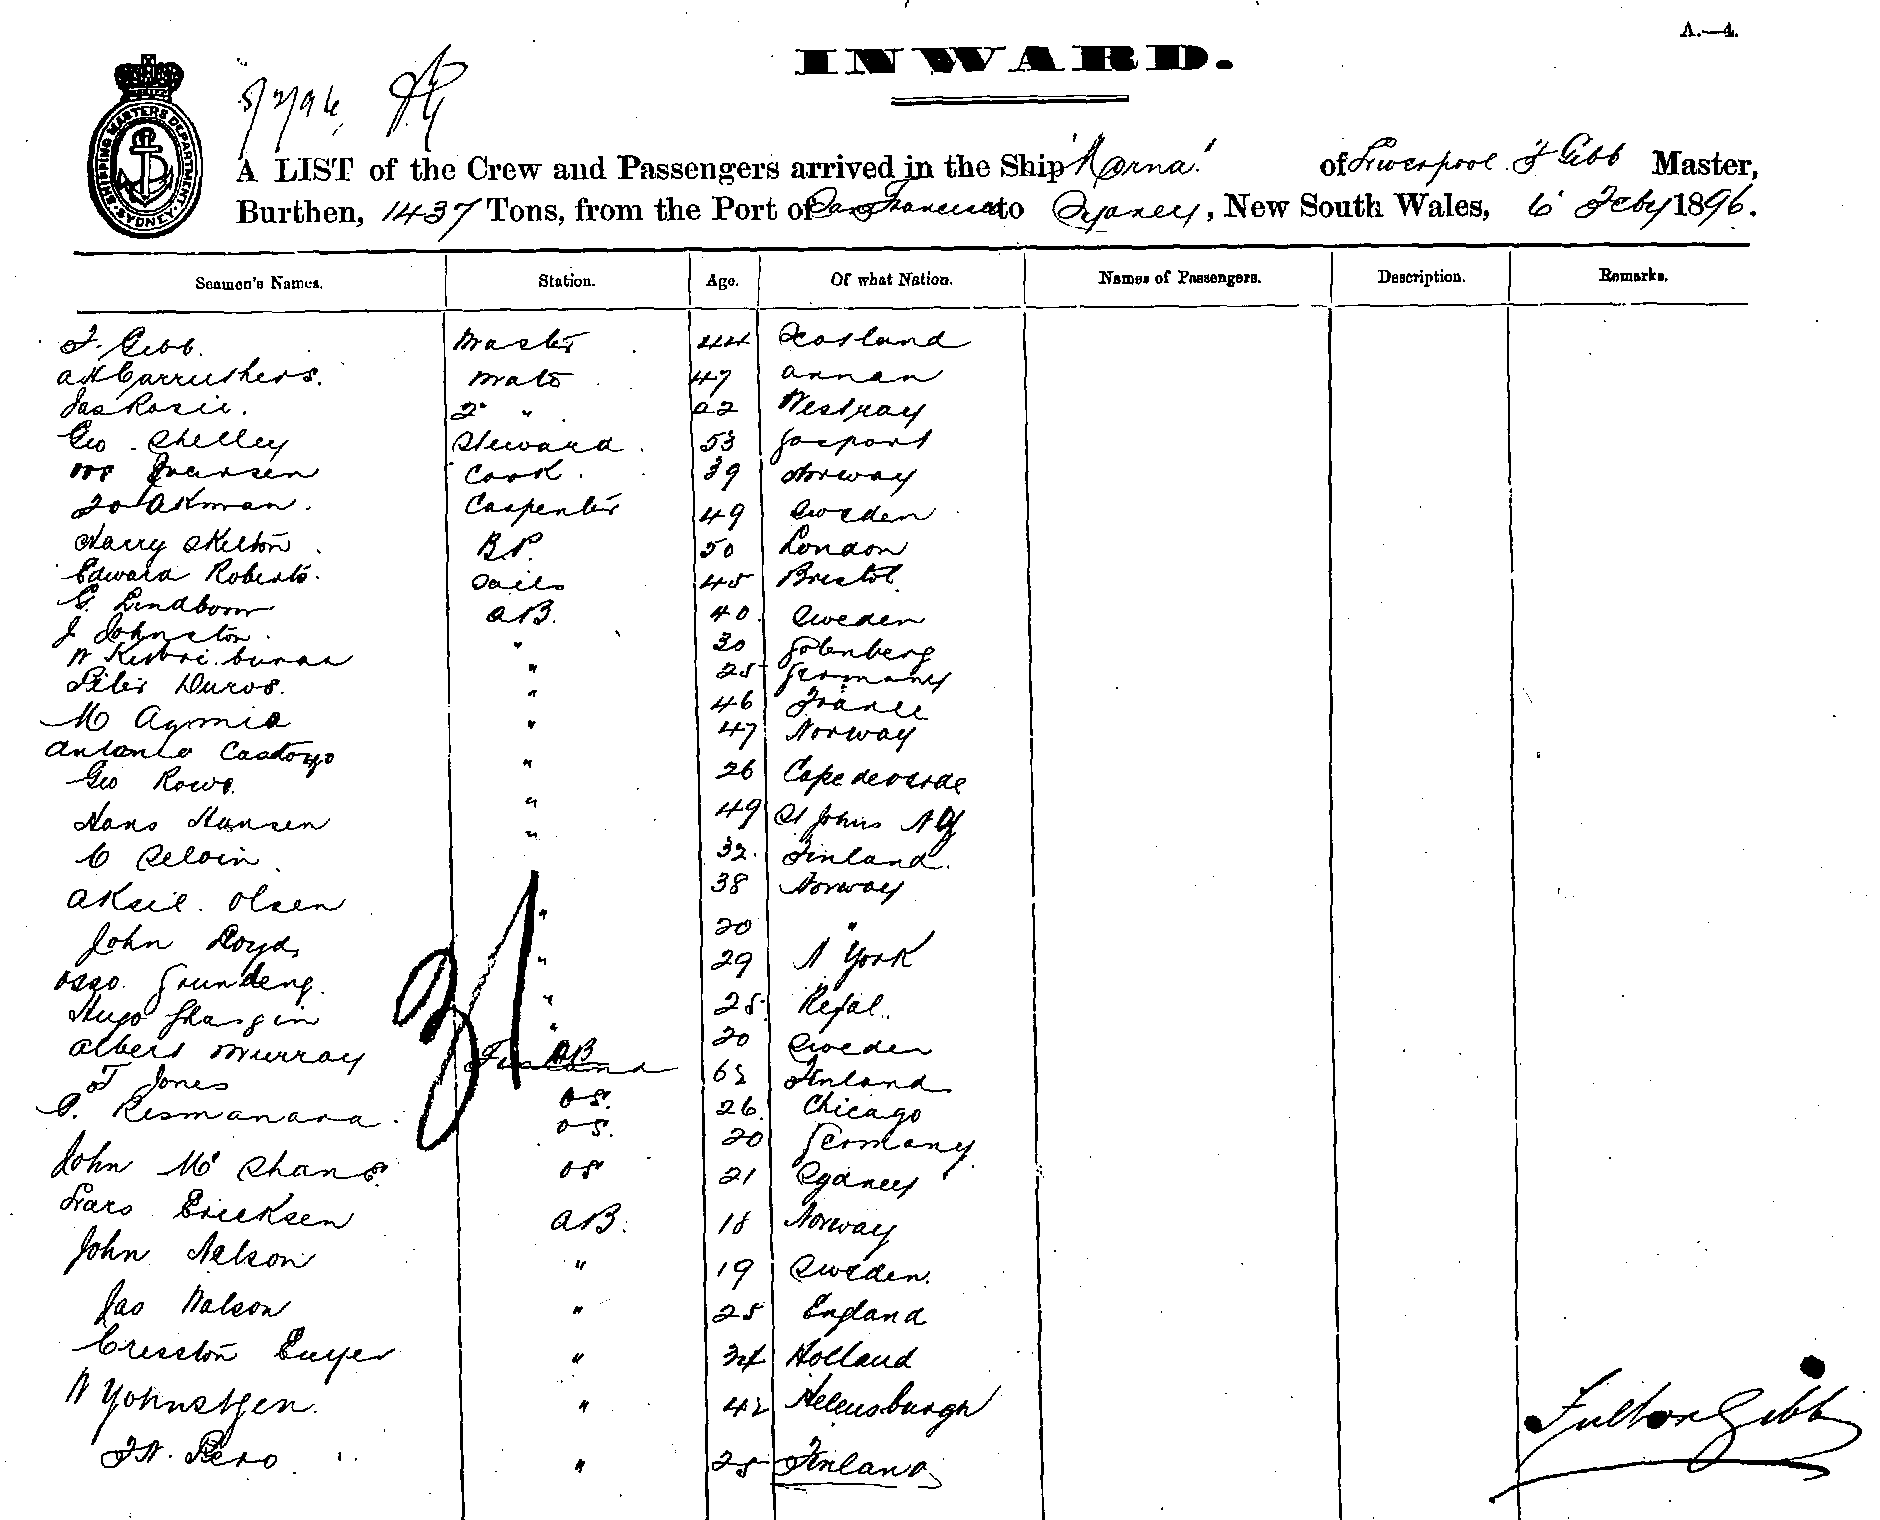 A.—4.
INWARD.
5/2/96
SHIPPING MASTERS DEPARTMENT SYDNEY
A LIST of the Crew and Passengers arrived in the Ship 'Norna' of Liverpool F Gibb Master,
Burthen, 1437 Tons, from the Port of San Francisco to Sydney, New South Wales, 6 Feby 1896.
Seamen's Names. Station. Age. Of what Nation. Names of Passengers. Description. Remarks.
F. Gibb. Master 44 Scotland
A H Carruthers. Mate 47 Annan
Jas Rosie. 2 " 22 Westray
Geo Shelley Steward. 53 Gosport
Iversen Cook. 39 Norway
Akman. Carpenter 49 Sweden
Harry Skelton. 50 London
Edward Roberts. Sails 45 Bristol
G. Lindbom AB. 40 Sweden
J Johnston. " 30 Gotenberg
W " 25 Germany
Peter Duros. " 46 France
M " 47 Norway
Antonio Castoyo " 26 Cape de Verde
Geo Rowe. " 49 St Johns
Hans Hansen " 32. Finland.
C Selvin. 38 Norway
Aksil. Olsen " 20 "
John Loyd, " 29 N York
" 25 Refal.
Hugo " 20 Sweden
Albert Murray Finland AB 62 Finland
T Jones OS. 26. Chicago
Resmanara. OS. 20 Germany
John Mc Shane. OS 21 Sydney
Lars Ericksen AB. 18 Norway
John Nelson " 19 Sweden.
Jas Watson " 25 England
Cresston " 34 Holland
W Yohnstgen. " 42 Helensburgh
Pero " 25 Finland
31
Fulton Gibb